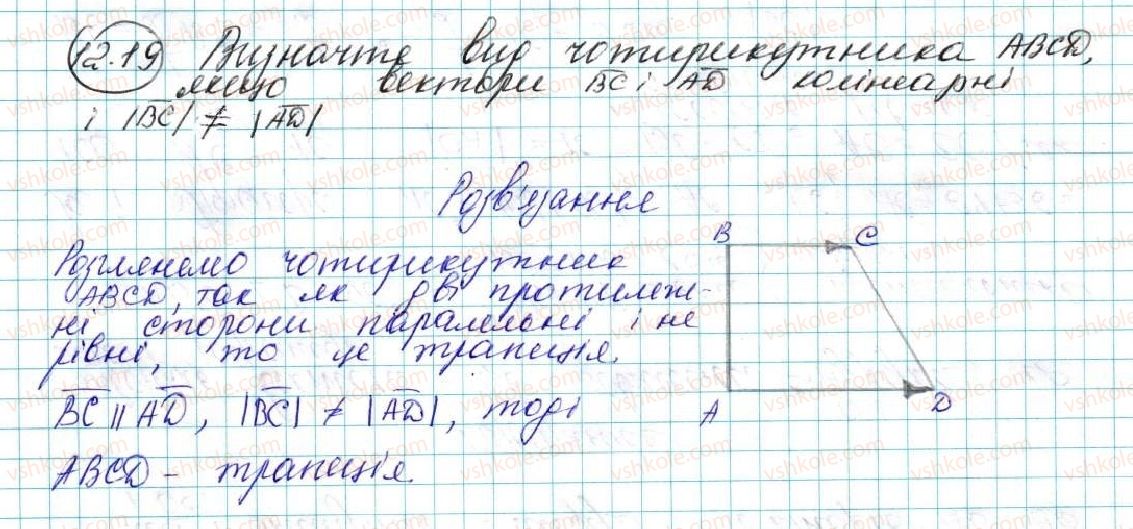 12.19 Визначте вид чотирикутника ABCD,
якщо вектори BC і AD колінеарні
і |BC| ≠ |AD|
Розв'язання
Розглянемо чотирикутник
ABCD, так як дві протилеж-
ні сторони паралельні і не
рівні, то це трапеція.
BC || AD, |BC| ≠ |AD|, тоді
ABCD - трапеція.
B C
A D
vshkole.com